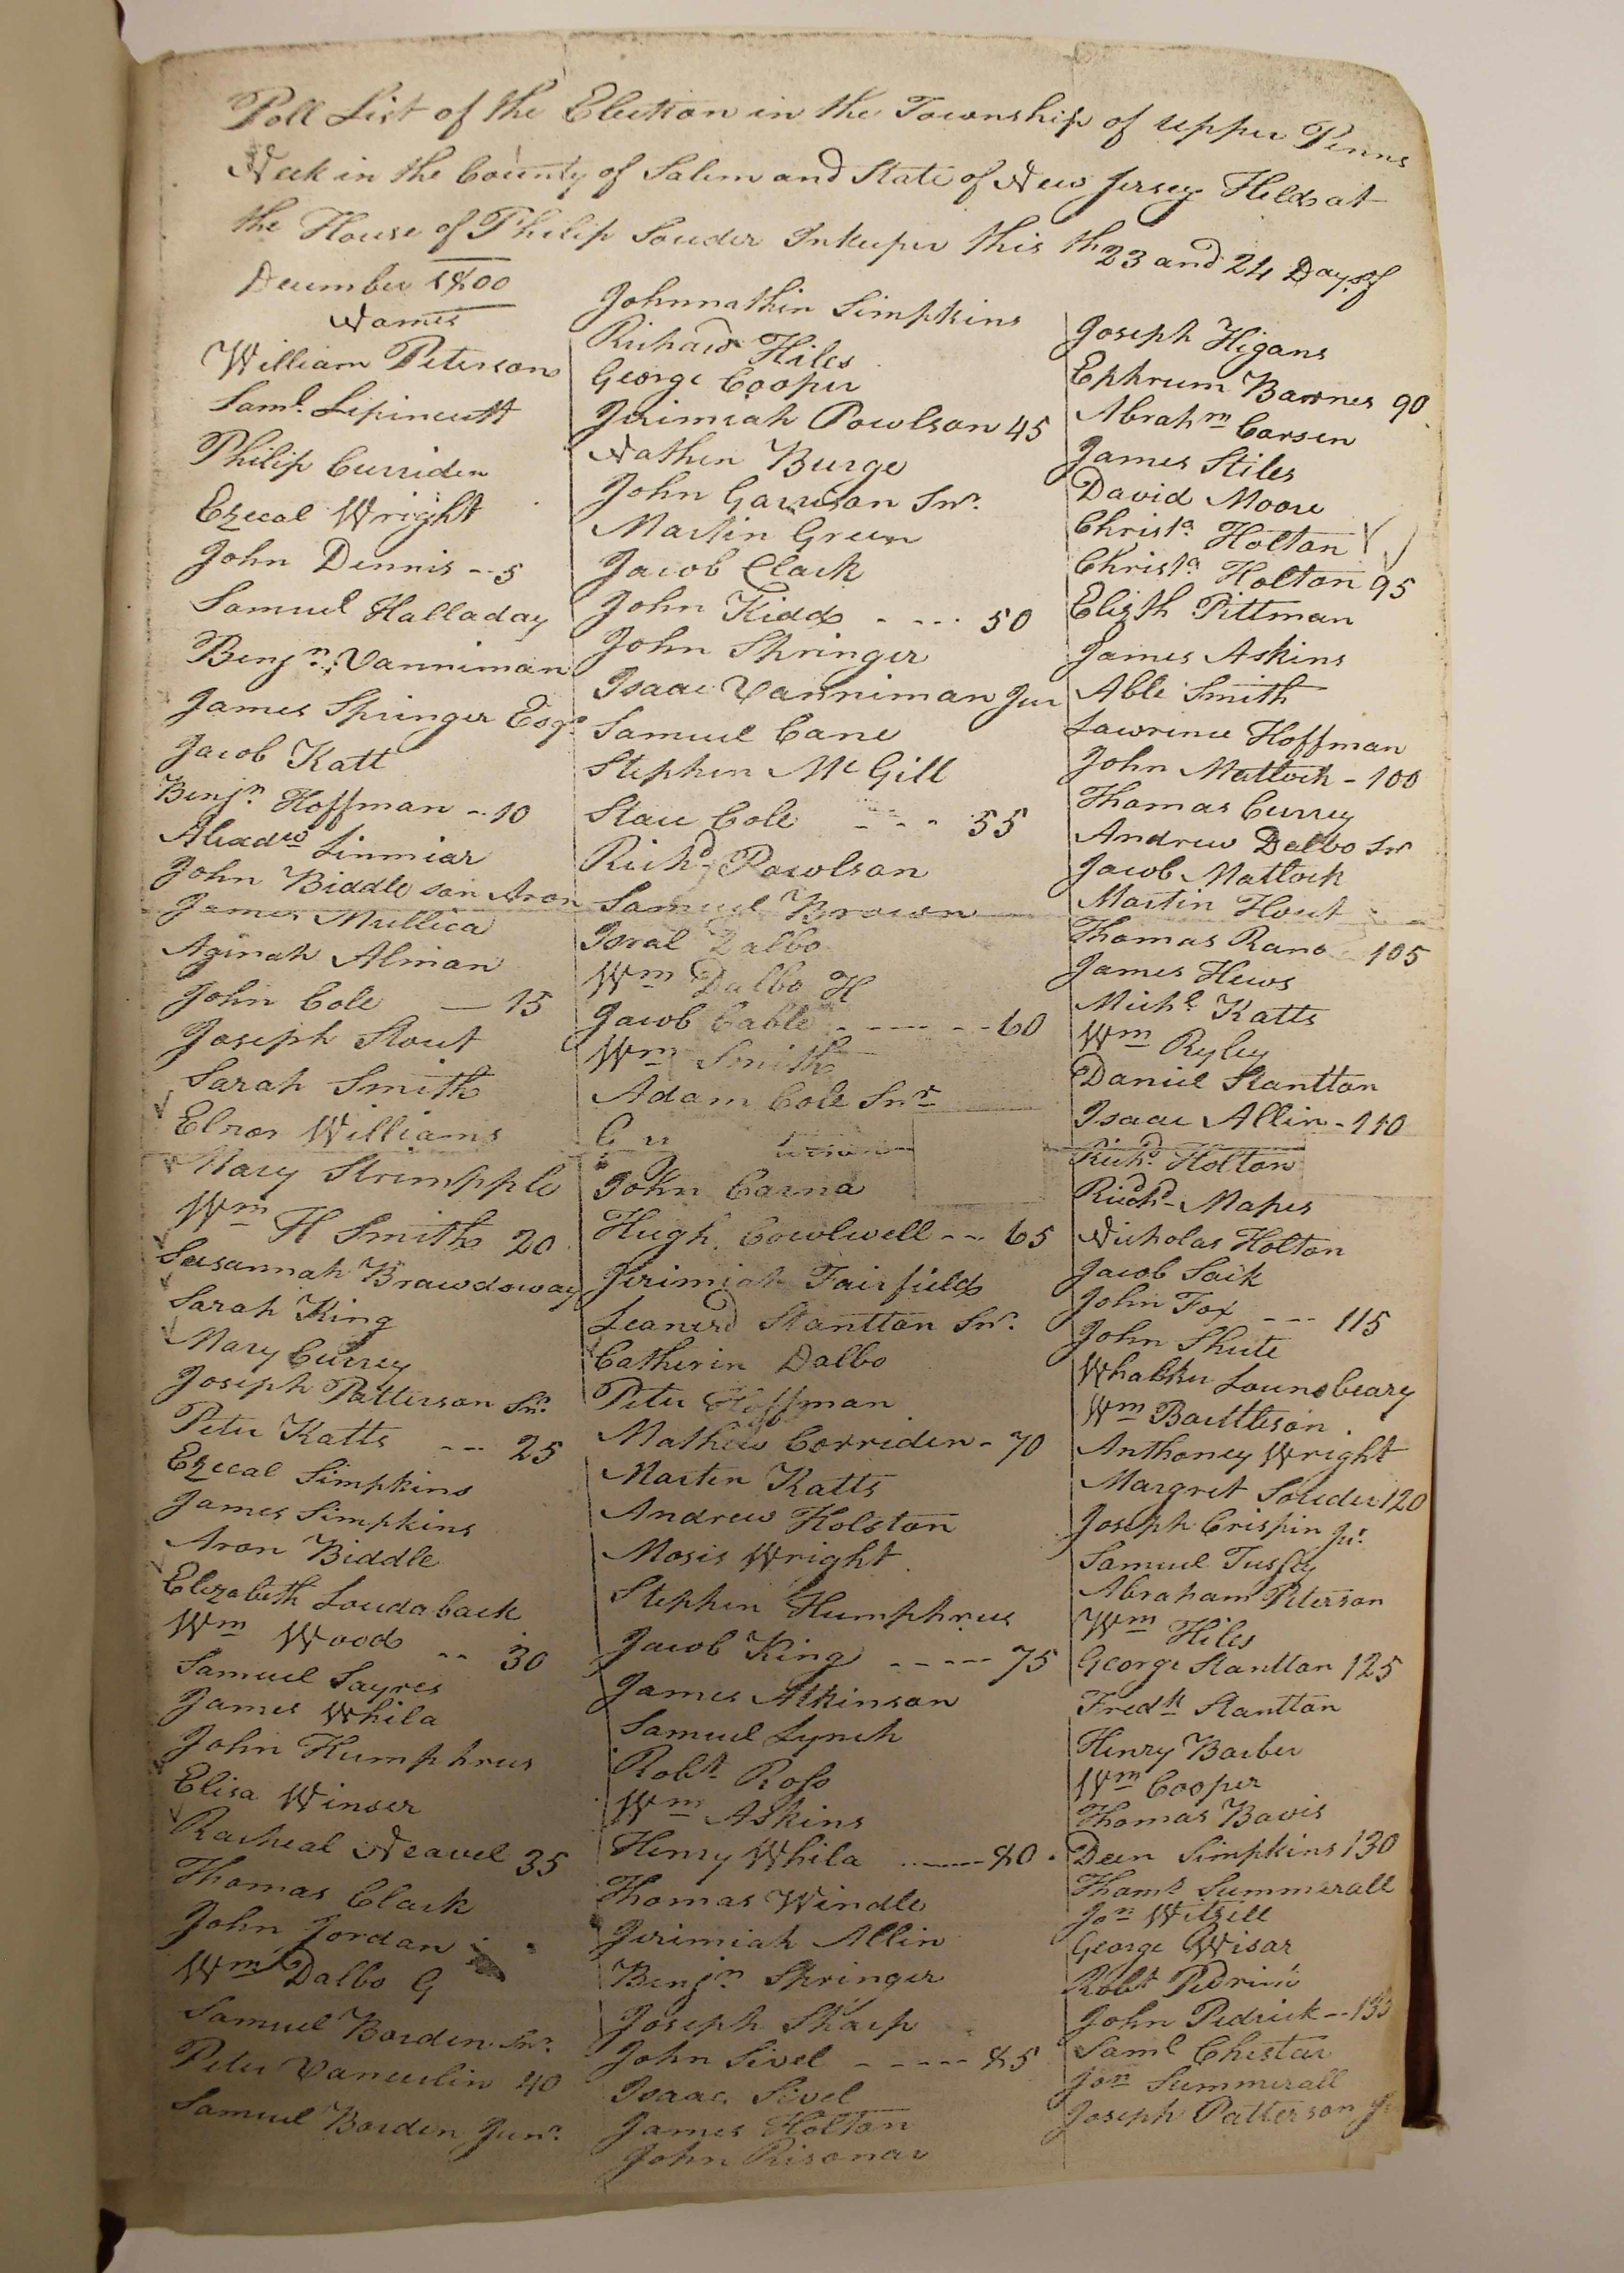 Poll List of the Election in the Township of Upper Penns
Neck in the County of Salem and State of New Jersey Held at
the House of Philip Souder Inkeeper this th 23 and 24 Days of
December 1800
Names
William Peterson
Saml. Lipincutt
Philip Curriden
Ezecal Wright
John Dennis -- 5
Samuel Halladay
Benjn. Vanniman
James Springer Esqr
Jacob Katt
Benjn. Hoffman -- 10
Linmiar
John Biddle son Aron
James Mullica
Aginah Alman
John Cole — 15
Joseph Stout
Sarah Smith
Elnor Williams
Mary Strimpple
Wm H Smith 20
Susannah Brawdoway
Sarah King
Mary Currey
Joseph Patterson Snr.
Peter Katts --- 25
Ezecal Simpkins
James Simpkins
Aron Biddle
Elezabeth Loudaback
Wm Wood -- 30
Samuel Sayres
James Whila
John Humphrus
Elisa Winser
Racheal Neavel 35
Thomas Clark
John Jordan
Wm Dalbo G
Samuel Borden Snr.
Peter Vanculin 40
Samuel Borden Junr.
Johnnathin Simpkins
Richard Hiles
George Cooper
Jirimiah Powlson 45
Nathen Burge
John Garrison Snr.
Martin Green
Jacob Clark
John Kidd - --- 50
John Springer
Isaac Vanniman Jur
Samuel Cane
Stephen Mc Gill
Stace Cole --- 55
Richd Powlson
Samuel Brown
Isral Dalbo
Wm Dalbo H
Jacob Cable ------ 60
Wm Smith
Adam Cole Snr
John Carna
Hugh Cowlwell -- 65
Jirimiah Fairfield
Leanerd Stantton Snr.
Catherin Dalbo
Peter Hoffman
Mathew Corriden - 70
Marten Katts
Andrew Holston
Mosis Wright
Stephen Humphrus
Jacob King ----- 75
James Atkinson
Samuel Lynch
Robt Ross
Wm Askins
Henry Whila ------ 80
Thomas Windle
Jirimiah Allin
Benjn Springer
Joseph Sharp
John Sivel ----- 85
Isaac Sivel
James Holton
John Risonar
Joseph Higans
Ephrum Barnes 90
Abrahm Corsen
James Stiles
David Moore
Christa. Holton
Christa. Holton 95
Elizth Pittman
James Askins
Able Smith
Lawrence Hoffman
John Mattock - 100
Thomas Currey
Andrew Dalbo Snr
Jacob Mattock
Martin Hout
Thomas Rano 105
James Hews
Michl Katts
Wm Ryley
Daniel Stantton
Isaac Allin - 110
Richd. Holton
Richd - Mapes
Nicholas Holton
Jacob Saik
John Fox --- 115
John Shute
Lounsbeary
Wm Baittleson
Anthoney Wright
Margret Souder 120
Joseph Crispin Jr.
Samuel Tussey
Abraham Peterson
Wm Hiles
George Stantton 125
Fredk Stantton
Henry Barber
Wm Cooper
Thomas Bavis
Deen Simpkins 130
Thoms Summerall
Jon Witsill
George Wisar
Robt
John Pedrick -- 135
Saml Chestar
Jon Summerall
Joseph Patterson